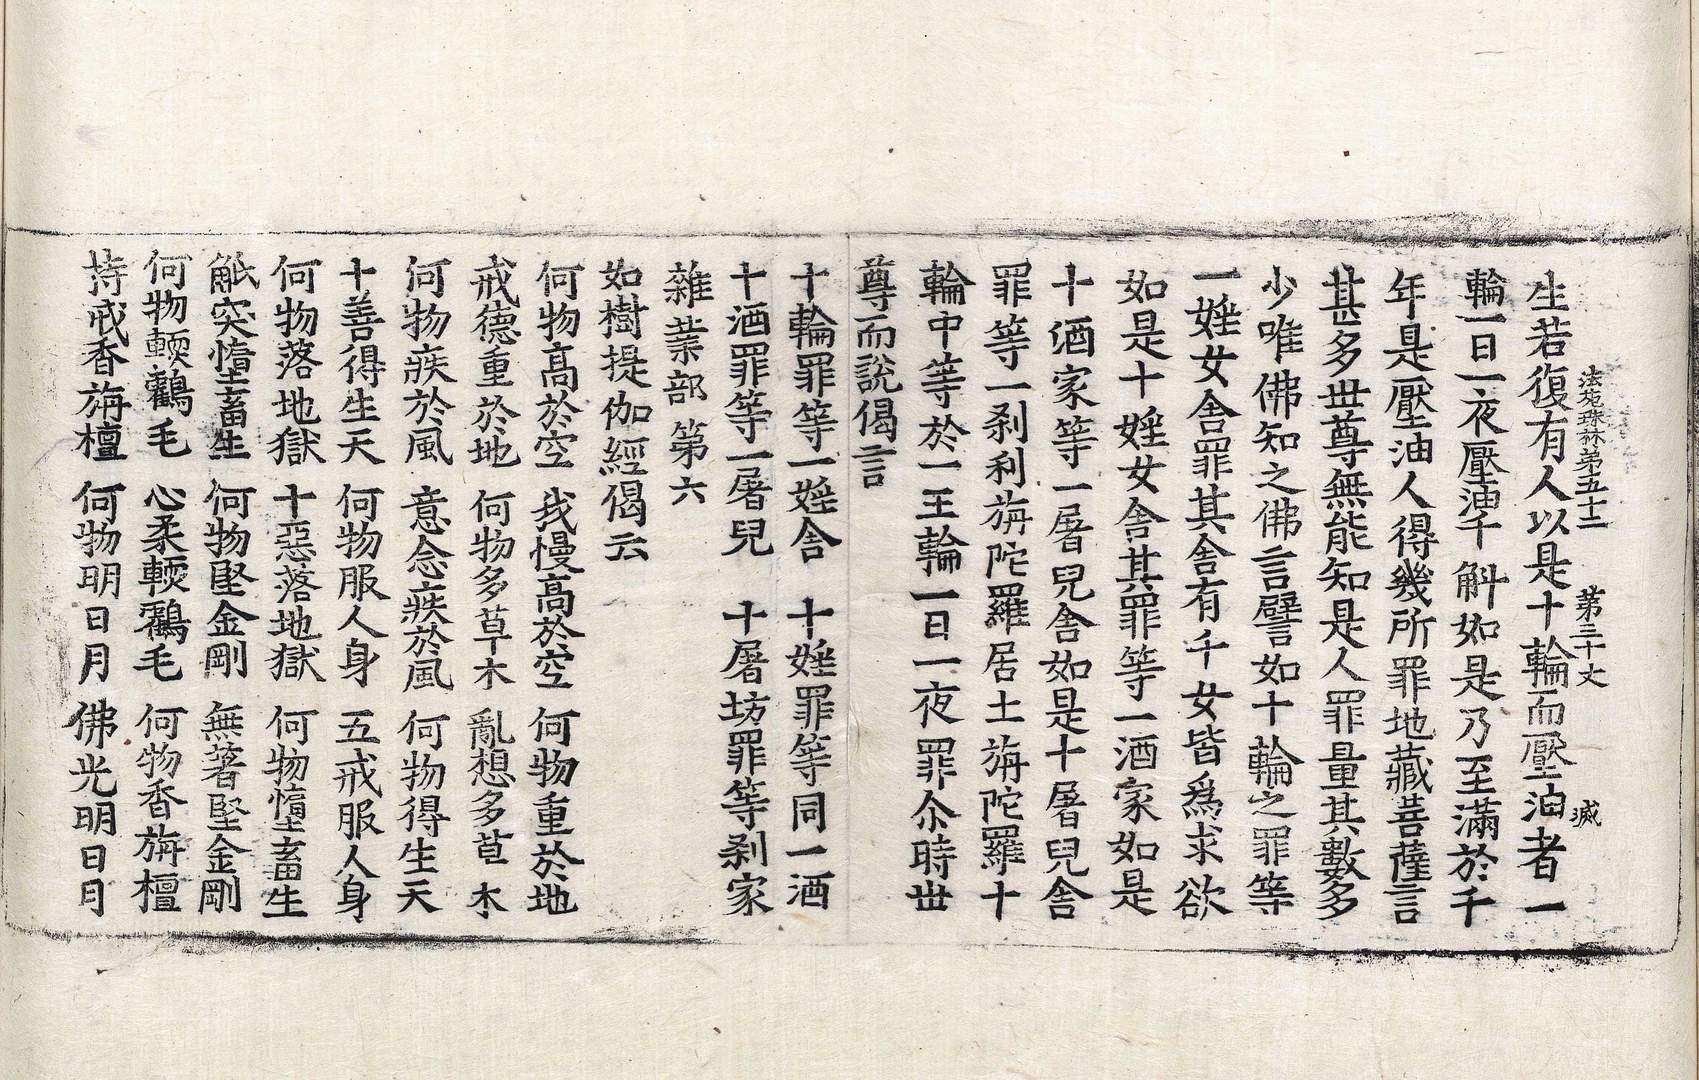 法苑珠林第五十二　第三十丈　滅
生若復有人以是十輪而壓油者一
輪一日一夜壓油千斛如是乃至滿於千
年是壓油人得幾所罪地藏菩薩言
甚多世尊無能知是人罪量其數多
少唯佛知之佛言譬如十輪之罪等
一婬女舍罪其舍有千女皆爲求欲
如是十婬女舍其罪等一酒家如是
十酒家等一屠兒舍如是十屠兒舍
罪等一剎利旃陀羅居士旃陀羅十
輪中等於一王輪一日一夜罪尒時世
尊而說偈言
十輪罪等一婬舍　十婬罪等同一酒
十酒罪等一屠兒　十屠坊罪等剎家
雜業部第六
如樹提伽經偈云
何物高於空　我慢高於空　何物重於地
戒德重於地　何物多草木　亂想多草木
何物疾於風　意念疾於風　何物得生天
十善得生天　何物服人身　五戒服人身
何物落地獄　十惡落地獄　何物墮畜生
觝突墮畜生　何物堅金剛　無著堅金剛
何物輭鸖毛　心柔輭鸖毛　何物香旃檀
持戒香旃檀　何物明日月　佛光明日月